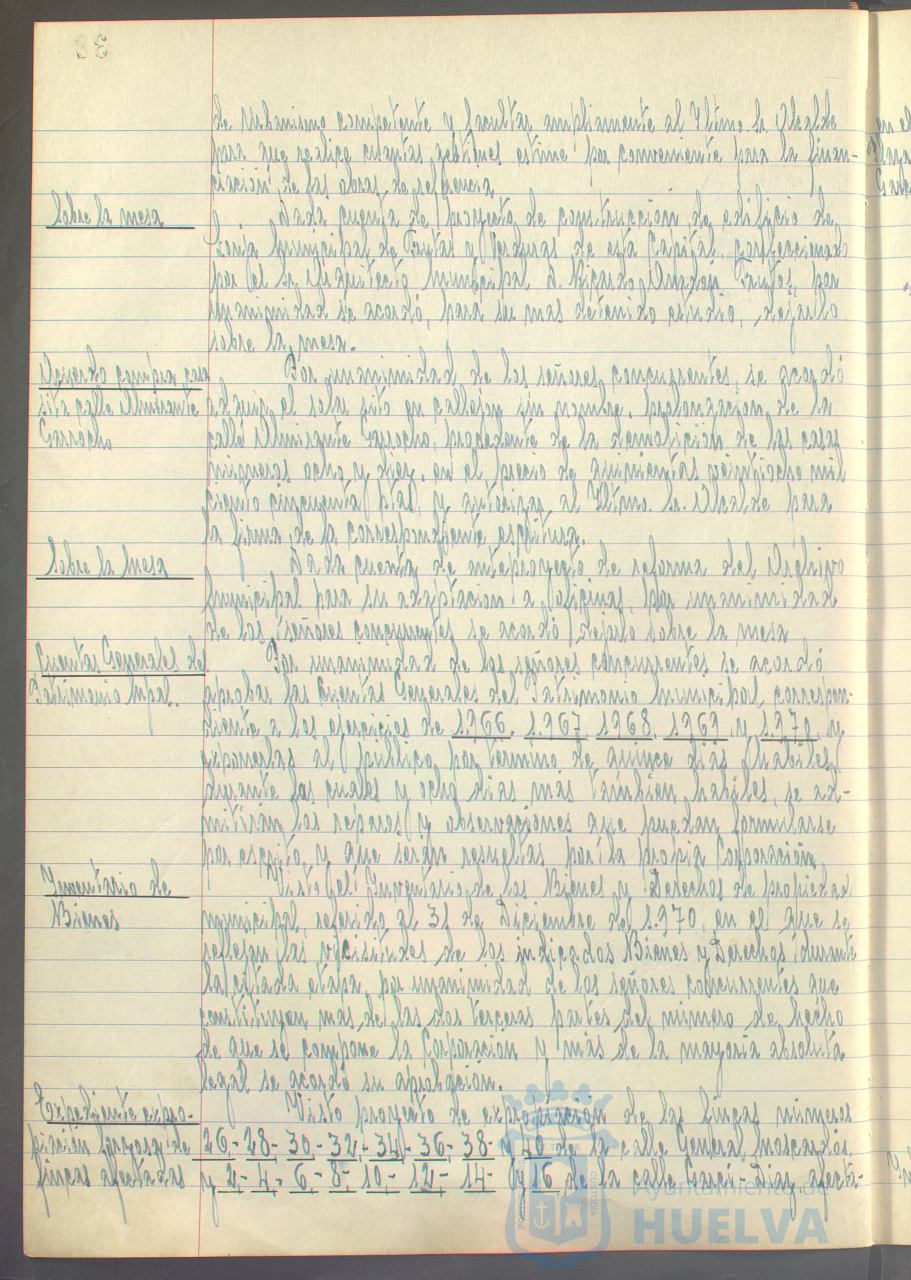 38
de Urbanismo competente y facultar ampliamente al Iltmo. Sr. Alcalde
para que realice cuantas gestiones estime por conveniente para la finan-
ciación de las obras de referencia
Sobre la mesa
Dada cuenta de Proyecto de construcción de edificio de
Lonja Municipal de Frutas y Verduras de esta Capital, confeccionado
por el Sr. Arquitecto Municipal D. Ricardo Anadón Frutos, por
unanimidad se acordó, para su mas detenido estudio, dejarlo
sobre la mesa.
Acuerdo compra casa
sita calle Almirante
Garrocho
Por unanimidad de los señores concurrentes, se acordó
adquirir el solar sito en callejón sin nombre, prolongacion de la
calle Almirante Garrocho, procedente de la demolición de las casas
numeros ocho y diez, en el precio de quinientas veintiocho mil
ciento cincuenta ptas, y autorizar al Iltmo. Sr. Alcalde para
la firma de la correspondiente escritura.
Sobre la Mesa
Dada cuenta de anteproyecto de reforma del Archivo
Municipal para su adaptacion a oficinas, por unanimidad
de los señores concurrentes se acordó dejarlo sobre la mesa
Cuentas Generales del
Patrimonio Mpal.
Por unanimidad de los señores concurrentes se acordó
aprobar las Cuentas Generales del Patrimonio Municipal correspon-
diente a los ejercicios de 1.966, 1.967, 1.968, 1.969 y 1.970, y
exponerlas al público por termino de quince días habiles,
durante los cuales y ocho dias más tambien habiles, se ad-
mitirán los reparos y observaciones que puedan formularse
por escrito, y que serán resueltas por la propia Corporación
Inventario de
Bienes
Visto el Inventario de los Bienes y Derechos de propiedad
municipal, referido al 31 de Diciembre de 1.970, en el que se
reflejan las vicisitudes de los indicados Bienes y Derechos durante
la citada etapa, por unanimidad de los señores concurrentes que
constituyen mas de las dos terceras partes del número de hecho
de que se compone la Corporación y más de la mayoria absoluta
legal se acordó su aprobación.
Expediente expro-
piación forzosa de
fincas afectadas
Visto proyecto de expropiación de las fincas números
26-28-30-32-34-36-38-40 de la calle General Moscardós
y 2-4-6-8-10-12-14 y 16 de la calle Garci-Diaz, afecta-
Ayuntamiento de
HUELVA